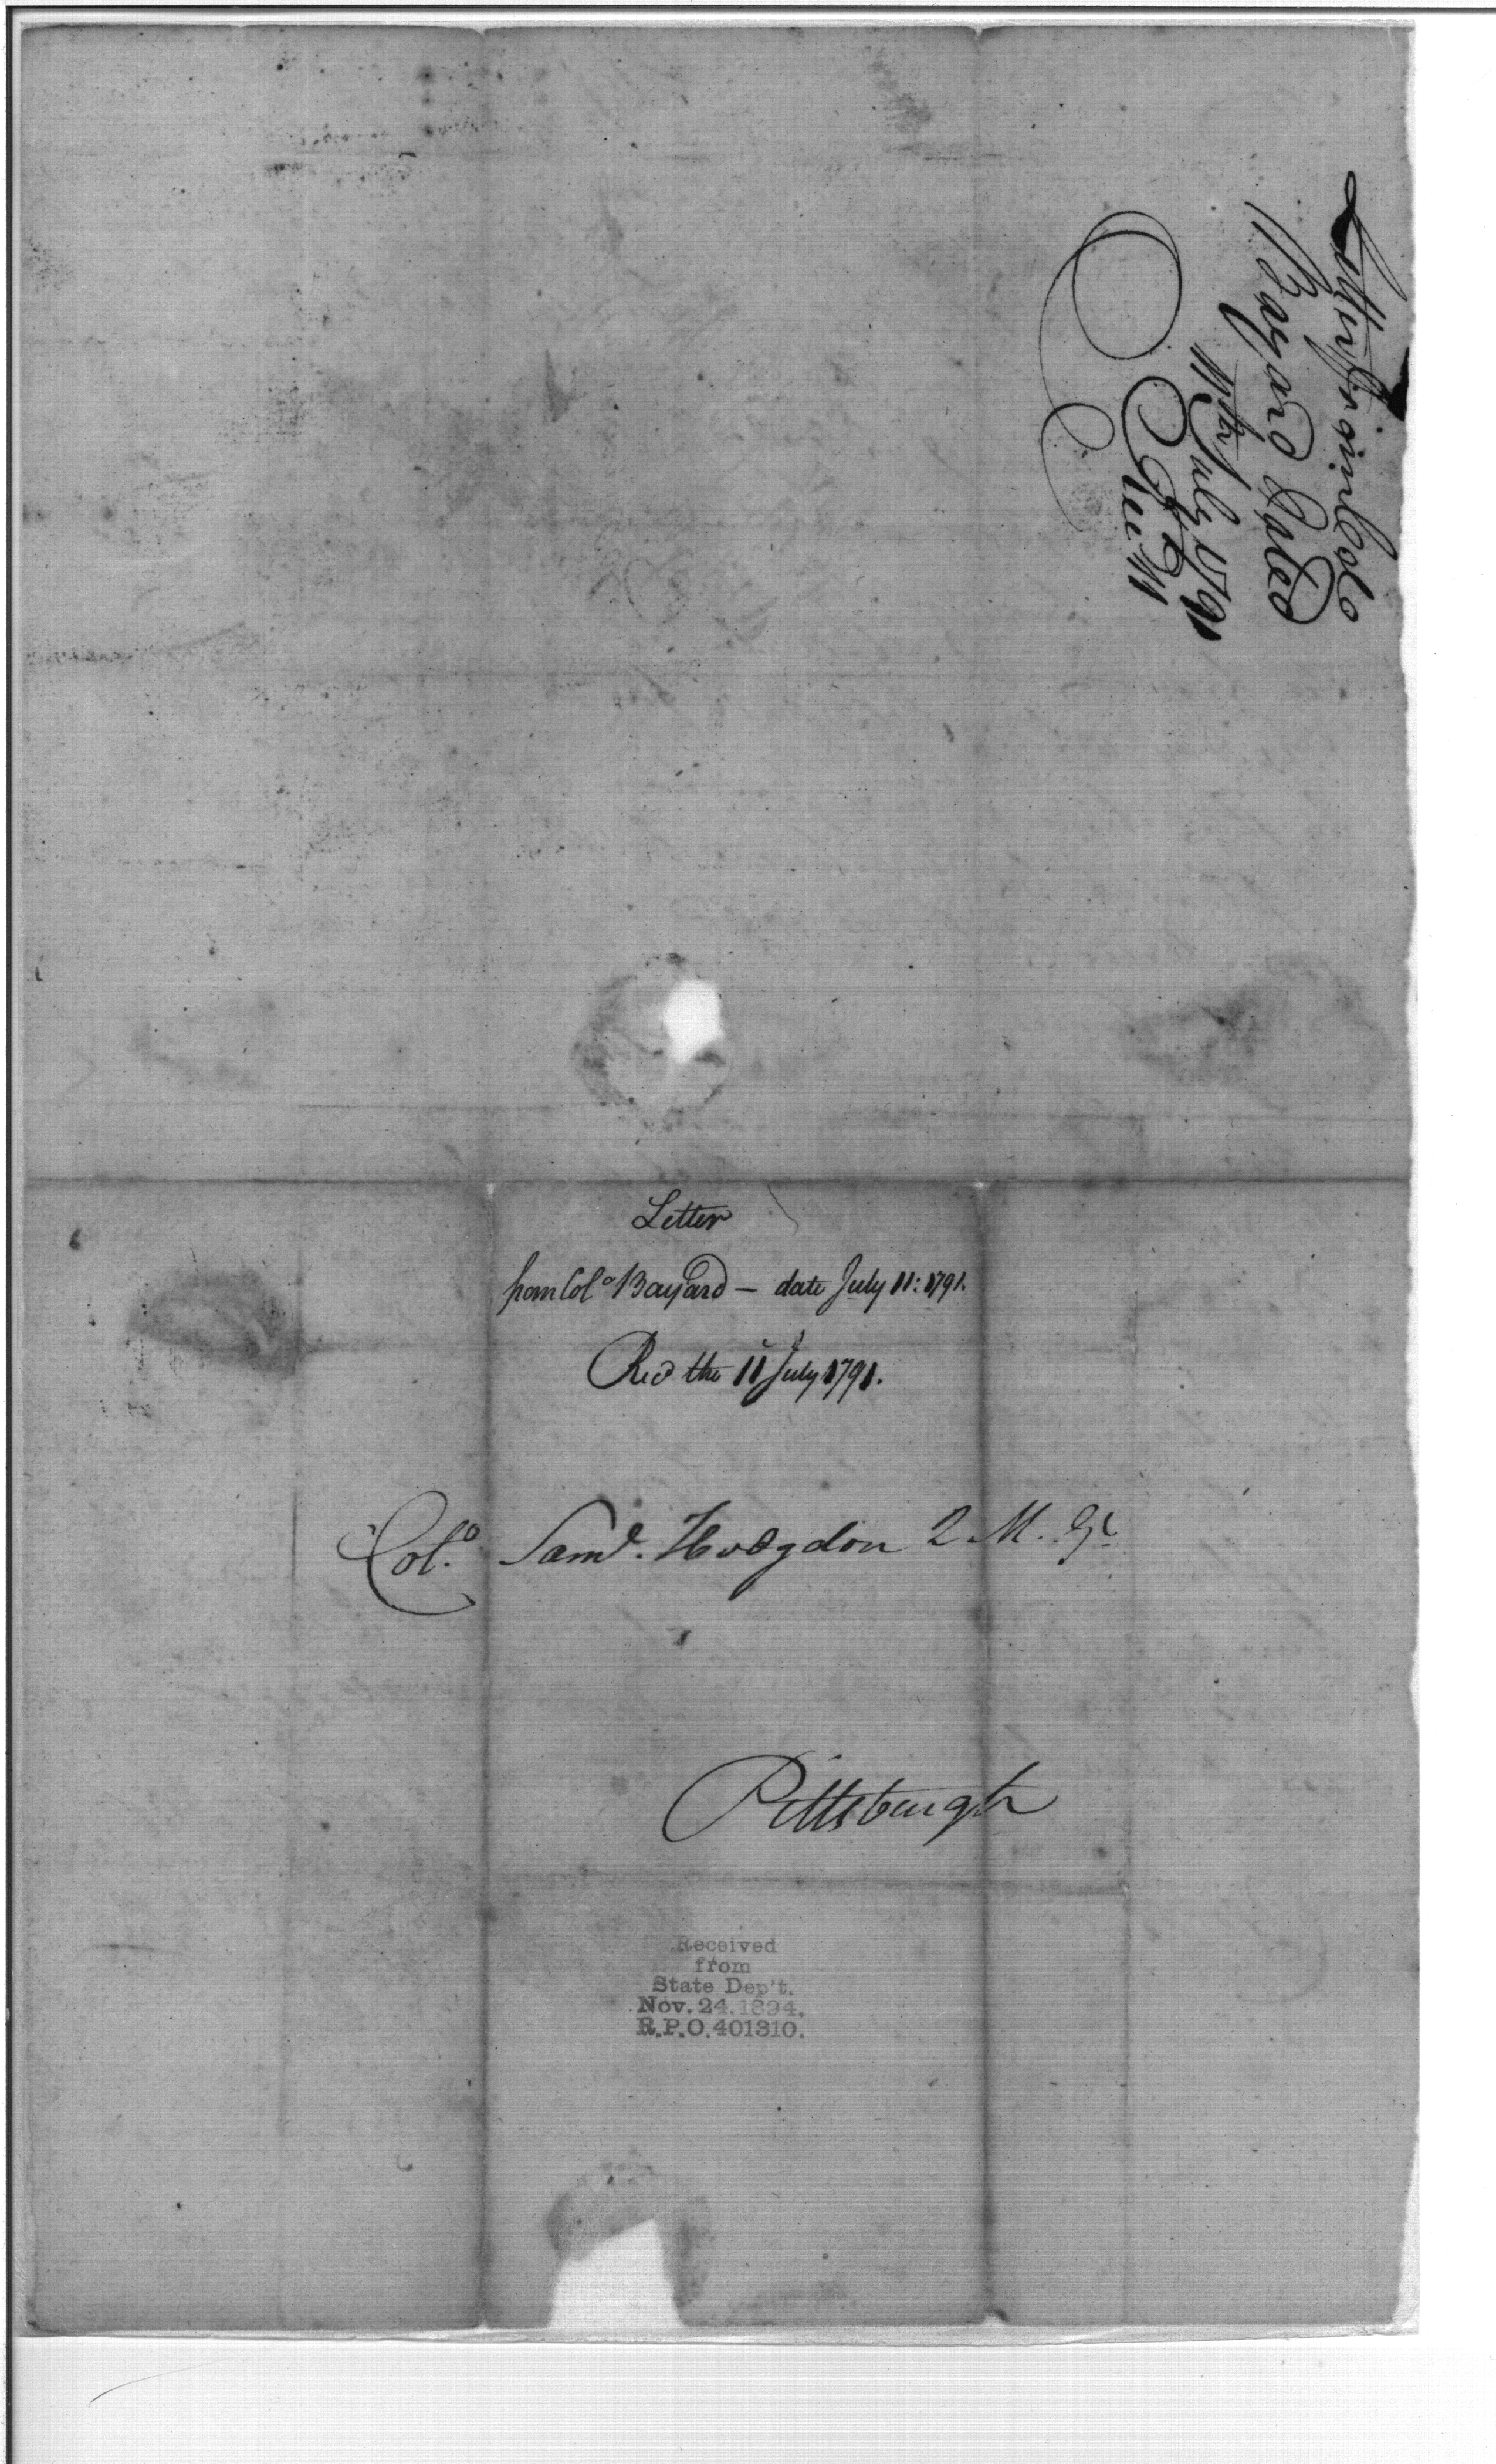 Letter from Colo
Bayard Dated
11th July 1791
Letter
from Colo Bayard — date July 11: 1791.
Recd the 11 July 1791.
Colo. Saml. Hodgdon Q M. Gl
Pittsburgh
Received
from
State Dep't.
Nov. 24. 1894.
R.P.O. 401310.